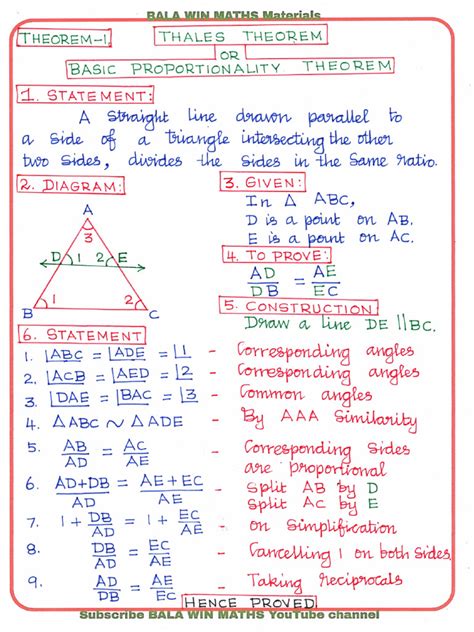 BALA WIN MATHS Materials
THEOREM-1. THALES THEOREM
OR
BASIC PROPORTIONALITY THEOREM
1. STATEMENT:
A straight line drawn parallel to
a side of a triangle intersecting the other
two sides, divides the sides in the same ratio.
2. DIAGRAM:
A
3
D 1 2 E
1 2
B C
3. GIVEN:
In Δ ABC,
D is a point on AB.
E is a point on AC.
4. TO PROVE:
AD/DB = AE/EC
5. CONSTRUCTION
Draw a line DE ∥ BC.
6. STATEMENT
1. ∠ABC = ∠ADE = ∠1 - Corresponding angles
2. ∠ACB = ∠AED = ∠2 - Corresponding angles
3. ∠DAE = ∠BAC = ∠3 - Common angles
4. Δ ABC ~ Δ ADE - By AAA Similarity
5. AB/AD = AC/AE - Corresponding sides
are proportional
6. AD+DB/AD = AE+EC/AE - Split AB by D
Split AC by E
7. 1 + DB/AD = 1 + EC/AE - on Simplification
8. DB/AD = EC/AE - Cancelling 1 on both sides
9. AD/DB = AE/EC - Taking reciprocals
HENCE PROVED
Subscribe BALA WIN MATHS YouTube channel